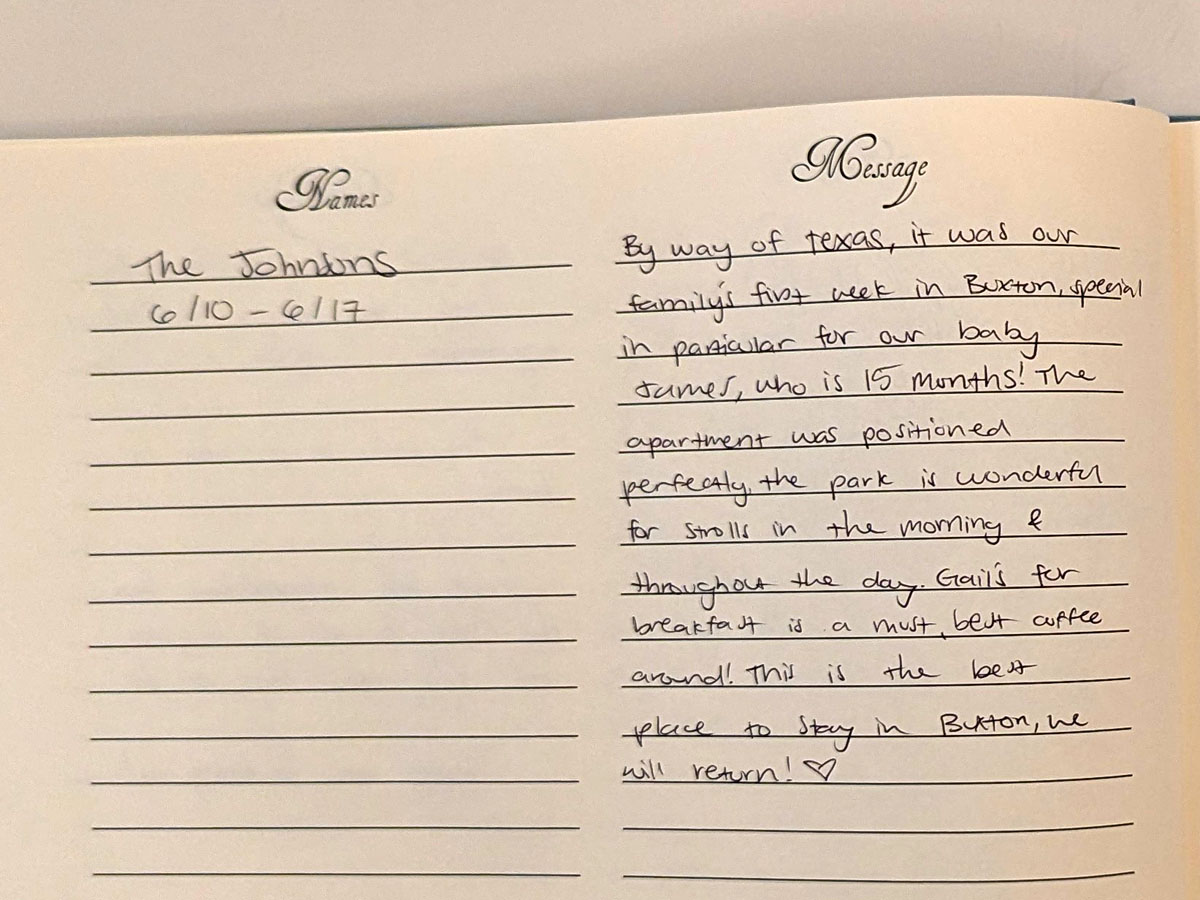 Names
The Johnsons
6/10 - 6/17
Message
By way of Texas, it was our
family's first week in Buxton, special
in particular for our baby
James, who is 15 months! The
apartment was positioned
perfectly, the park is wonderful
for strolls in the morning &
throughout the day. Gail's for
breakfast is a must, best coffee
around! This is the best
place to stay in Buxton, we
will return! ♡